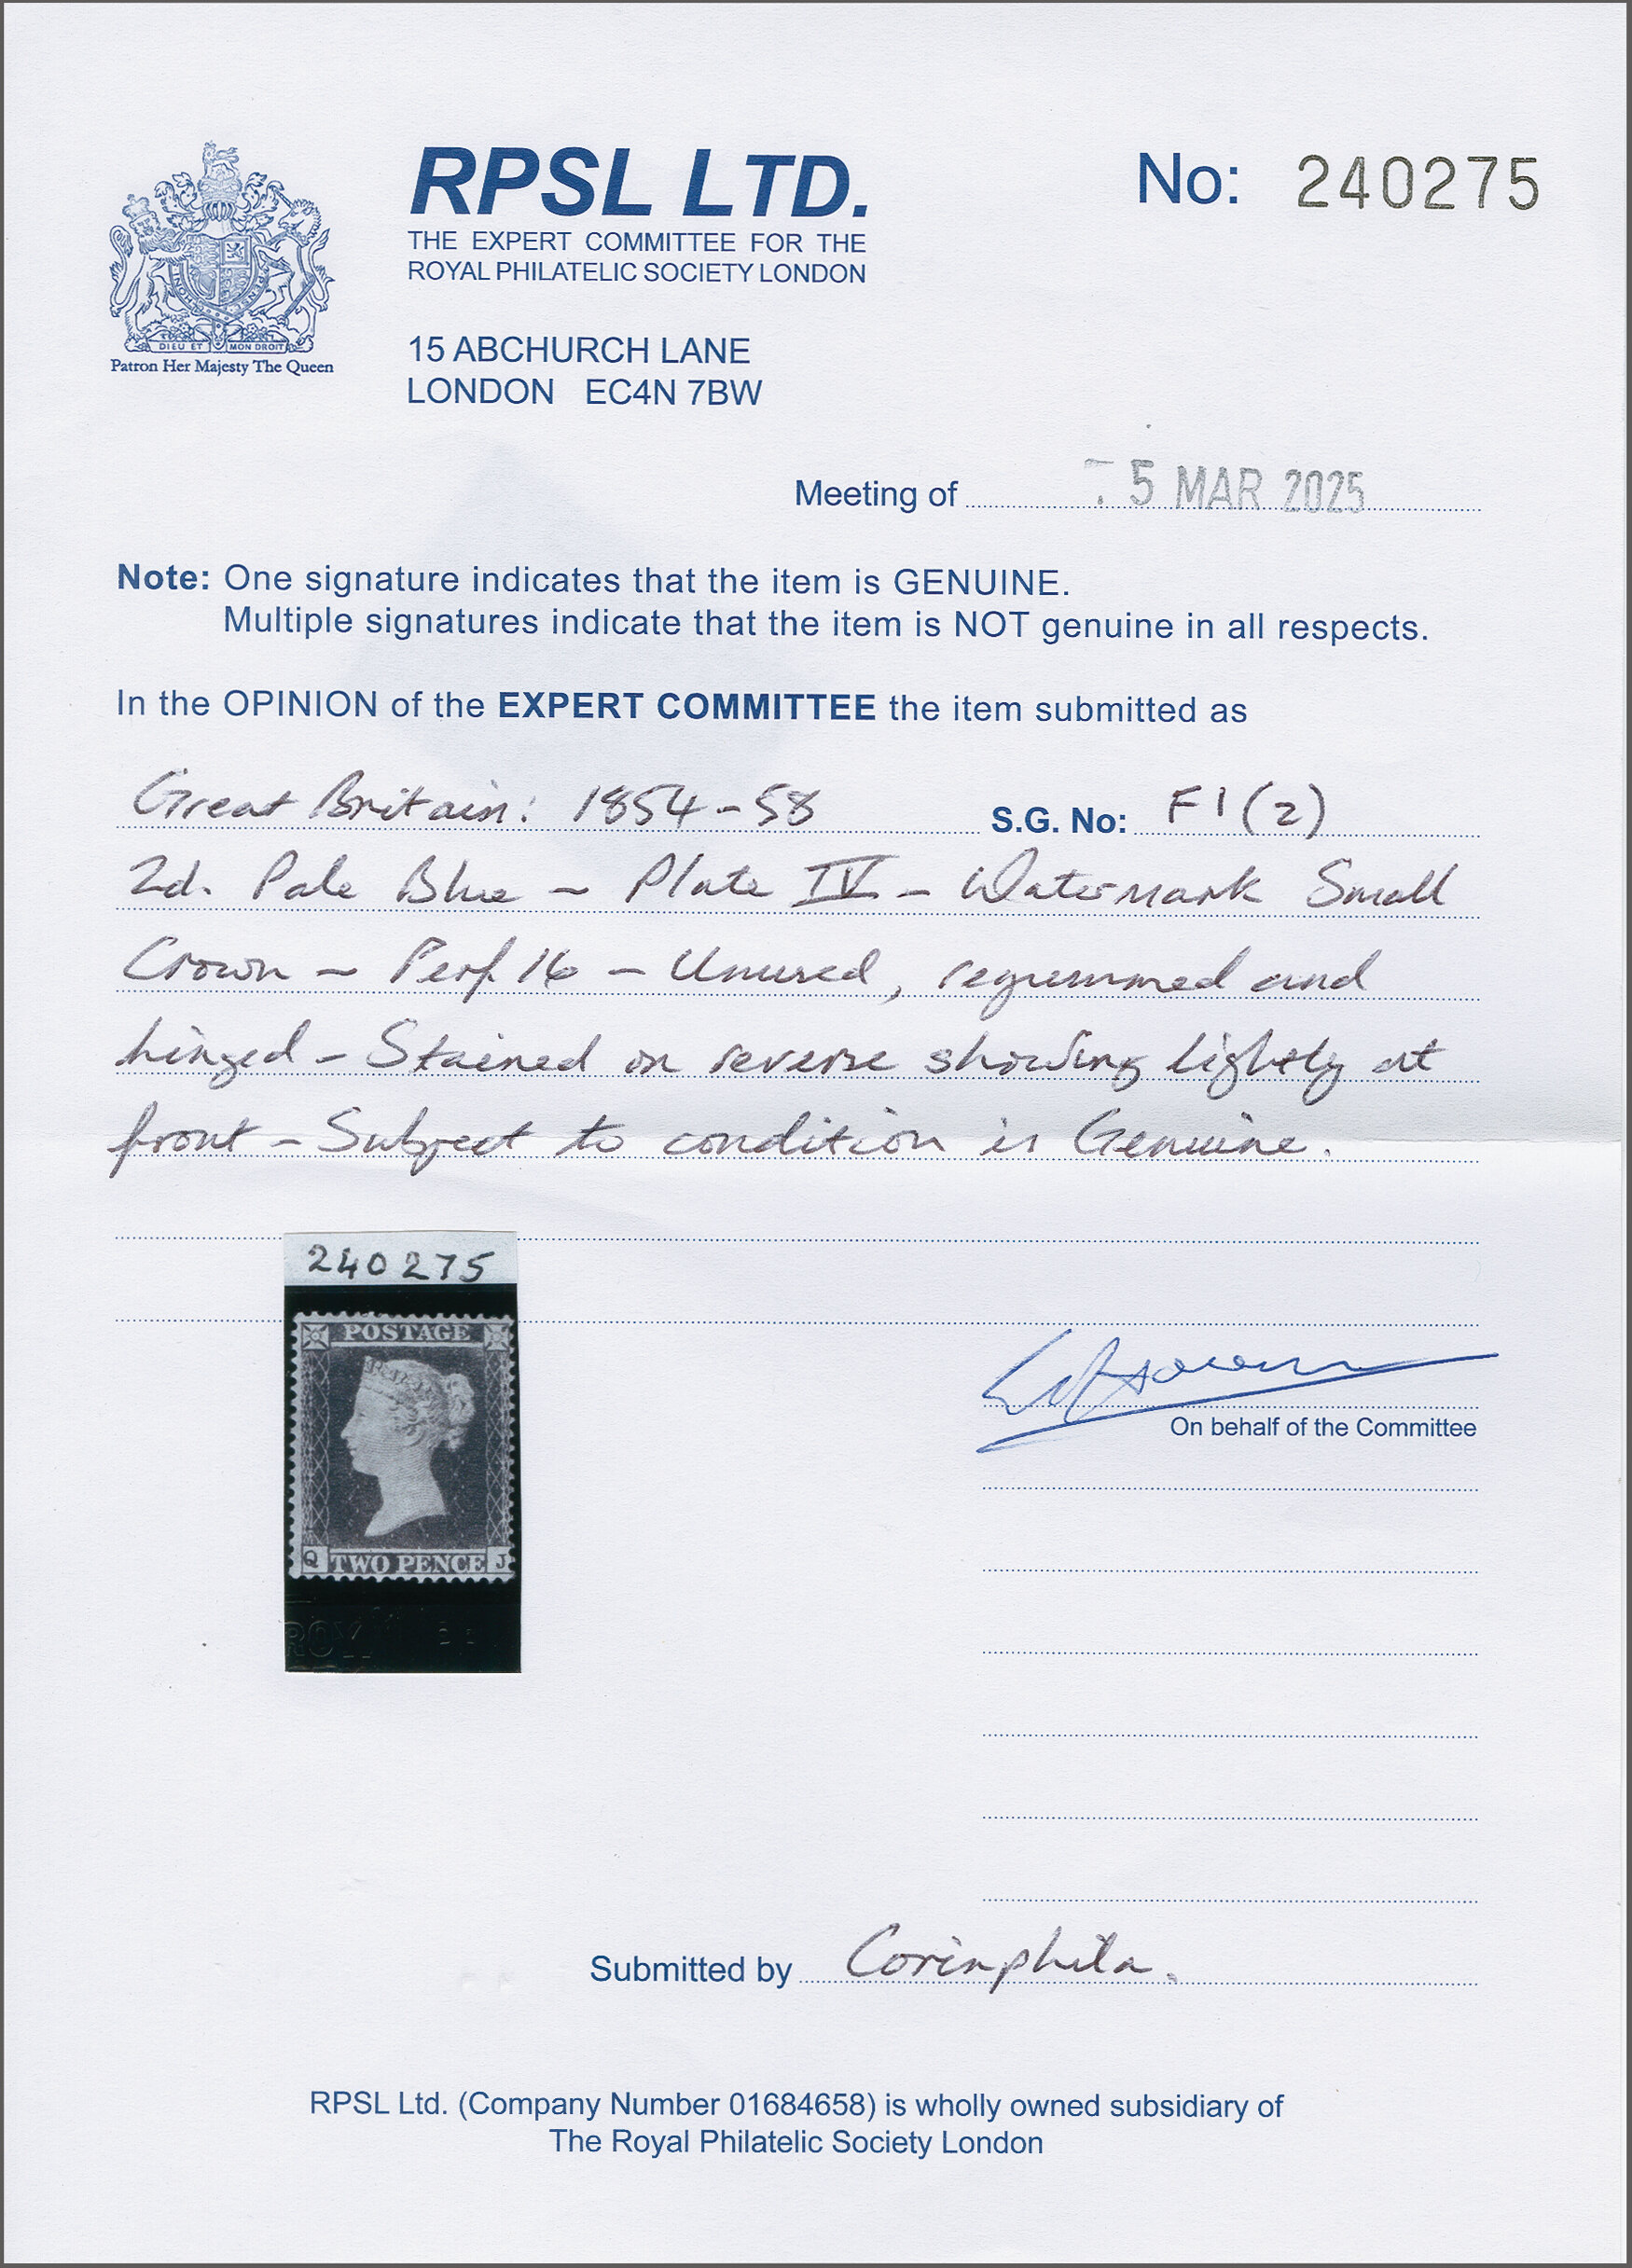 RPSL LTD.
THE EXPERT COMMITTEE FOR THE
ROYAL PHILATELIC SOCIETY LONDON
15 ABCHURCH LANE
LONDON EC4N 7BW
No: 240275
DIEU ET MON DROIT
Patron Her Majesty The Queen
Meeting of 5 MAR 2025
Note: One signature indicates that the item is GENUINE.
Multiple signatures indicate that the item is NOT genuine in all respects.
In the OPINION of the EXPERT COMMITTEE the item submitted as
Great Britain: 1854-58 S.G. No: F1(2)
2d. Pale Blue - Plate IV - Watermark Small
Crown - Perf 16 - Unused, regummed and
hinged - Stained on reverse showing lightly at
front - Subject to condition is Genuine.
240275
POSTAGE
Q TWO PENCE J
On behalf of the Committee
Submitted by Corinphila.
RPSL Ltd. (Company Number 01684658) is wholly owned subsidiary of
The Royal Philatelic Society London